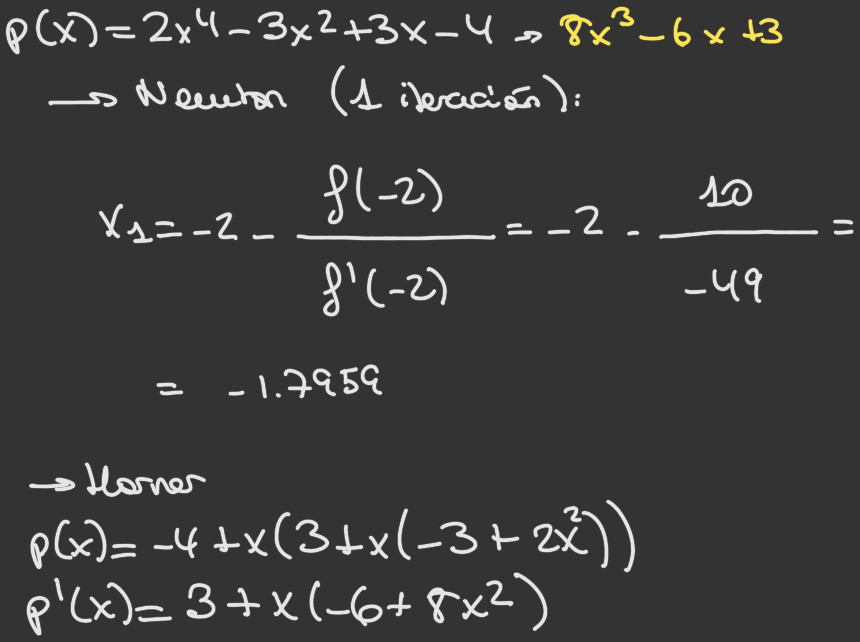 p(x)=2x⁴-3x²+3x-4 → 8x³-6x+3
→ Newton (1 iteración):
x₁=-2- f(-2)/f'(-2) = -2 - 10/-49 =
= -1.7959
→ Horner
p(x)= -4+x(3+x(-3+2x²))
p'(x)= 3+x(-6+8x²)